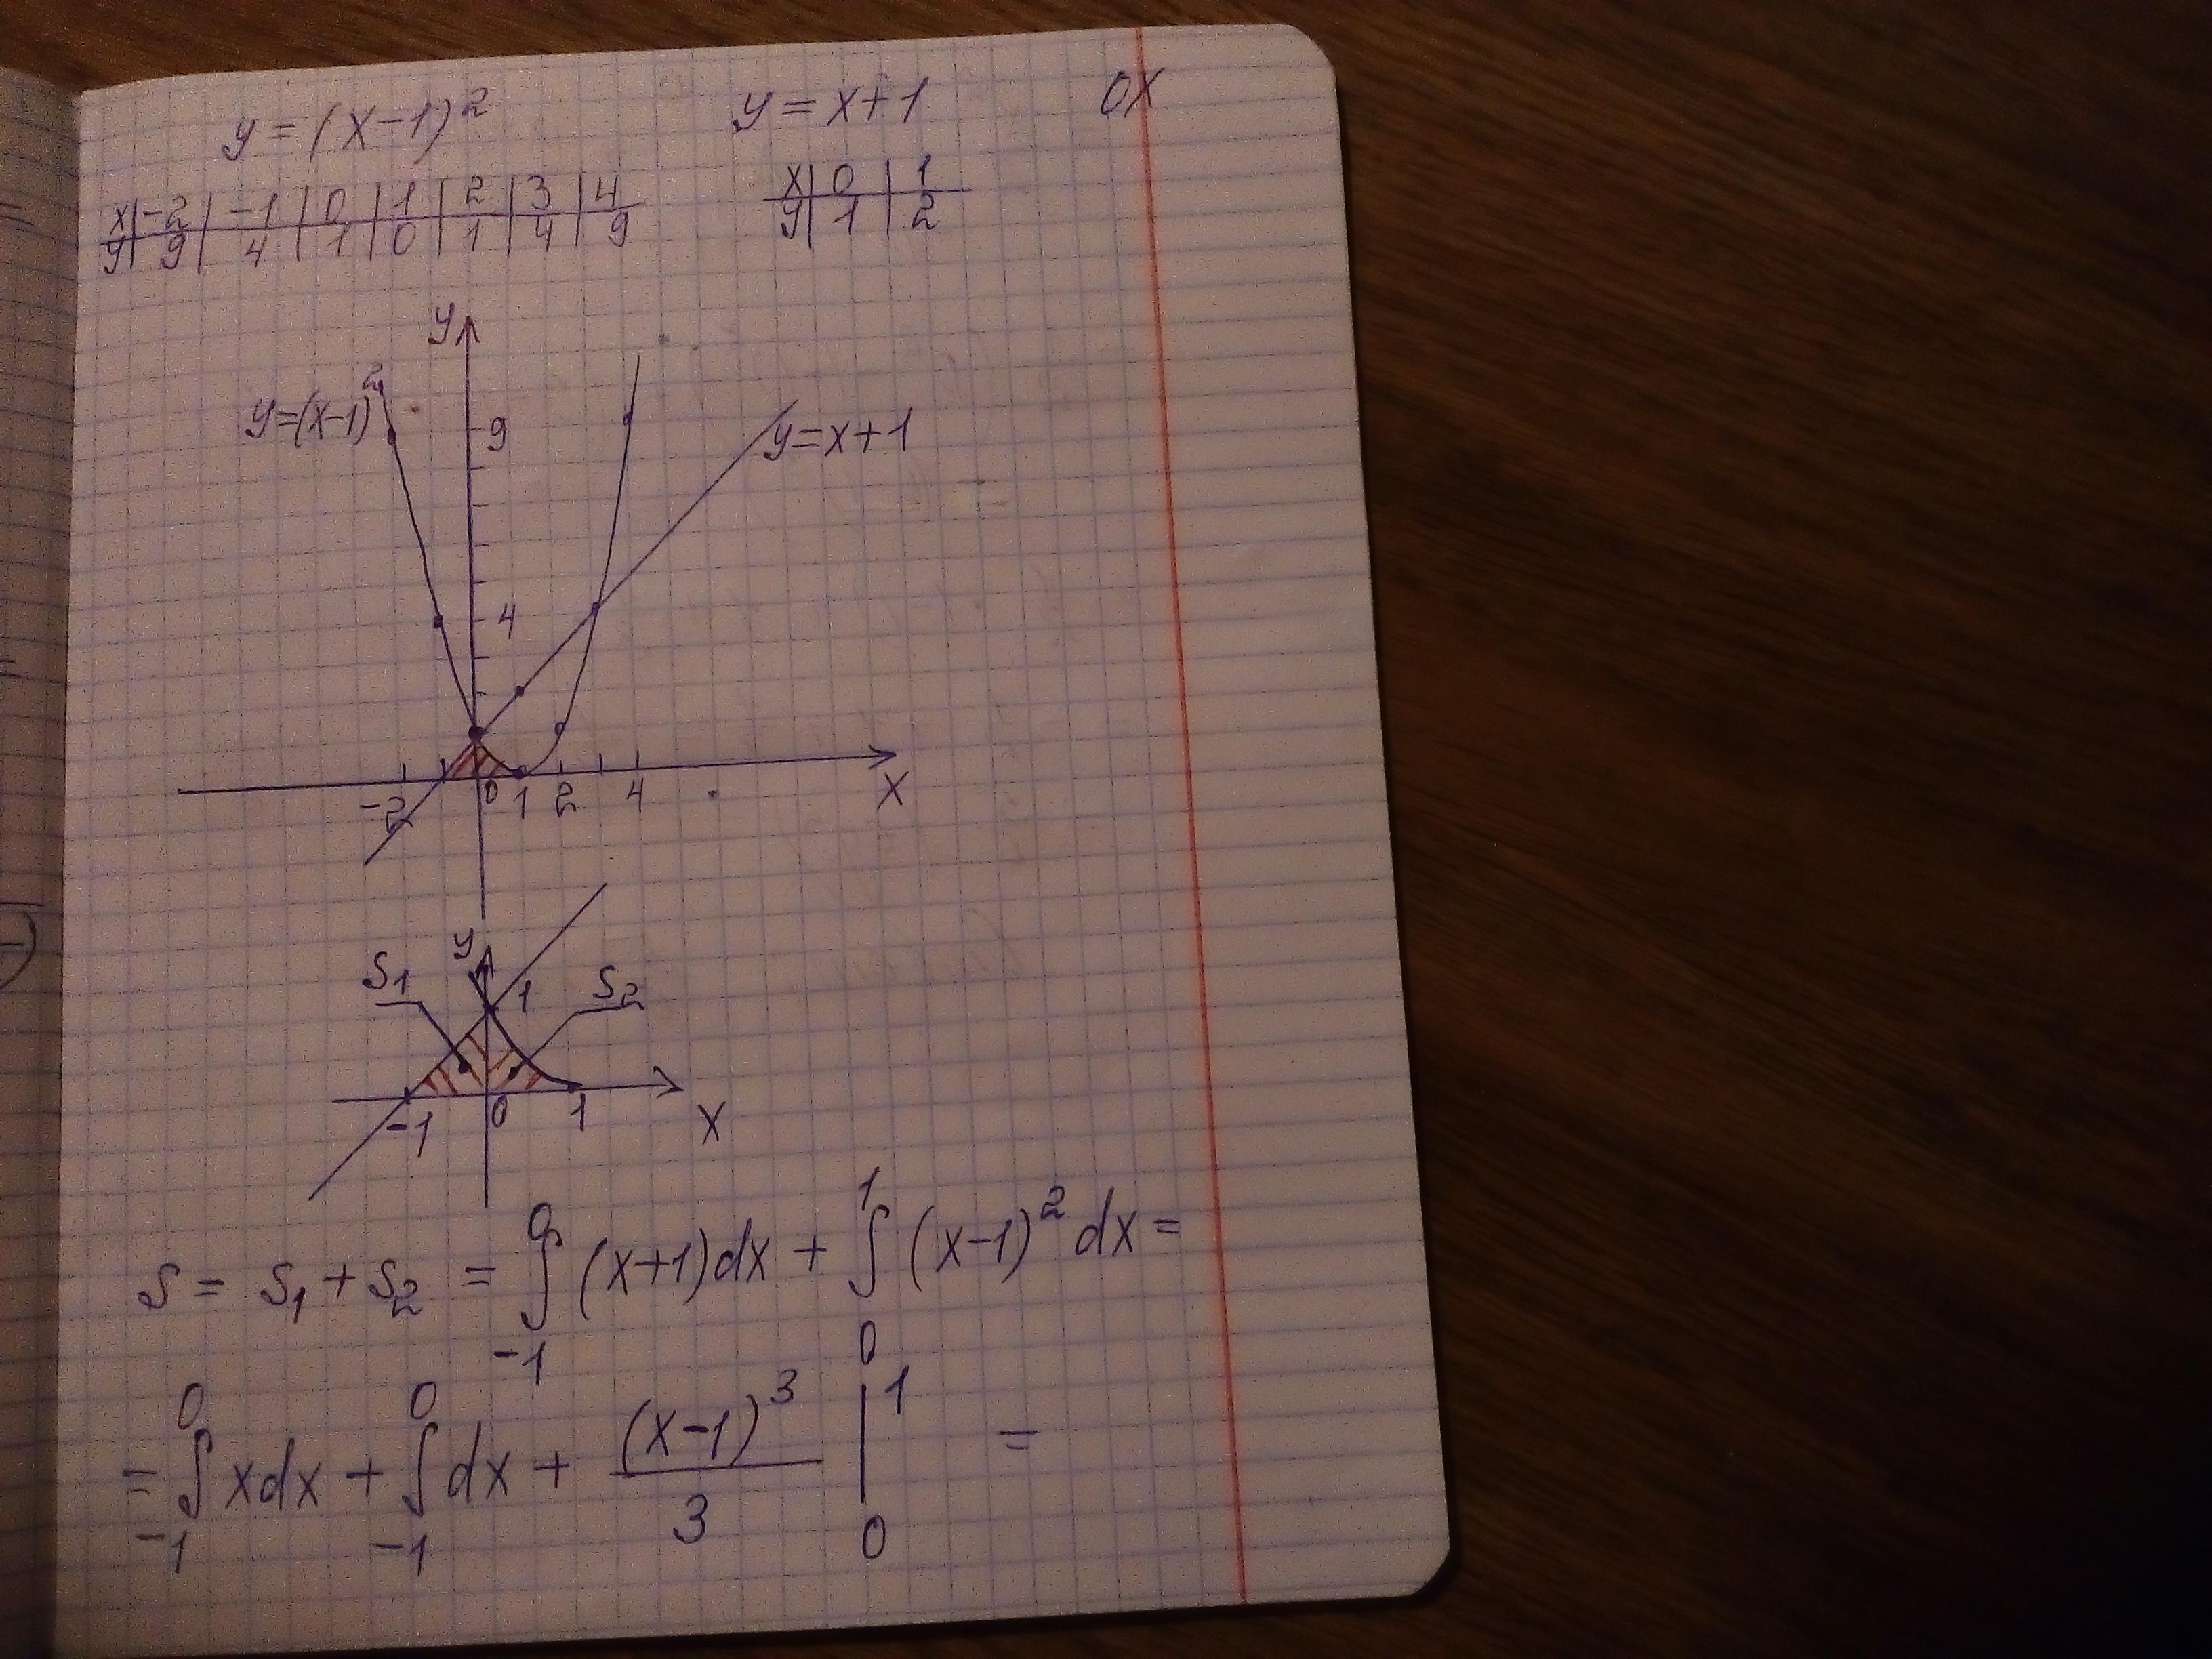 y = (x-1)² y = x+1 OX
x | -2 | -1 | 0 | 1 | 2 | 3 | 4 x | 0 | 1
y | 9 | 4 | 1 | 0 | 1 | 4 | 9 y | 1 | 2
y
y=(x-1)² 9 y=x+1
4
-2 0 1 2 4 x
y
S₁ 1 S₂
-1 0 1 x
S = S₁ + S₂ = ∫₋₁⁰ (x+1)dx + ∫₀¹ (x-1)² dx =
= ∫₋₁⁰ xdx + ∫₋₁⁰ dx + (x-1)³/3 |₀¹ =